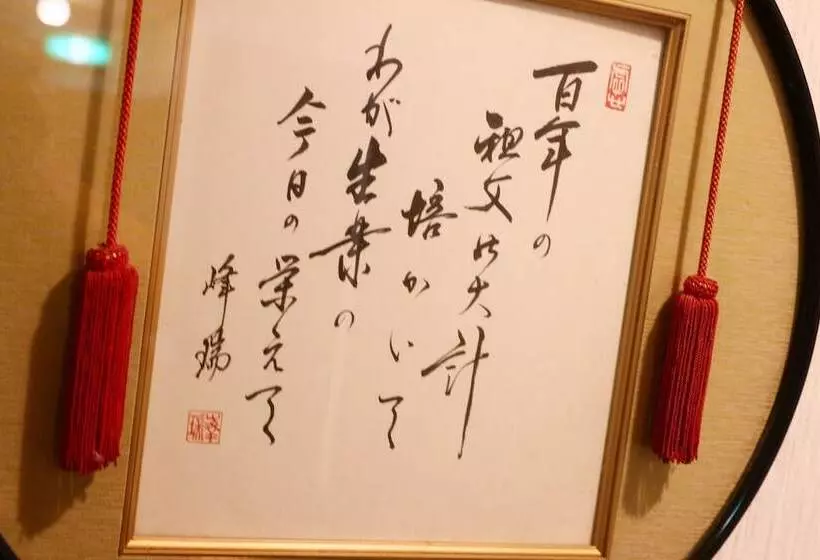 百年の
祖父の大計
培かいて
わが生業の
今日の栄えて
峰瑞